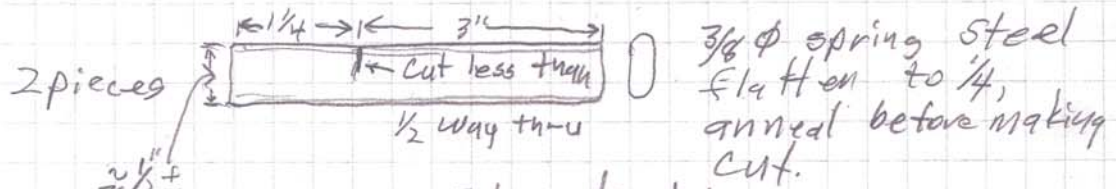 1 1/4 3"
2 pieces
cut less than
1/2 way thru
≈ 1/2" +
3/8 φ spring steel
flatten to 1/4,
anneal before making
cut.